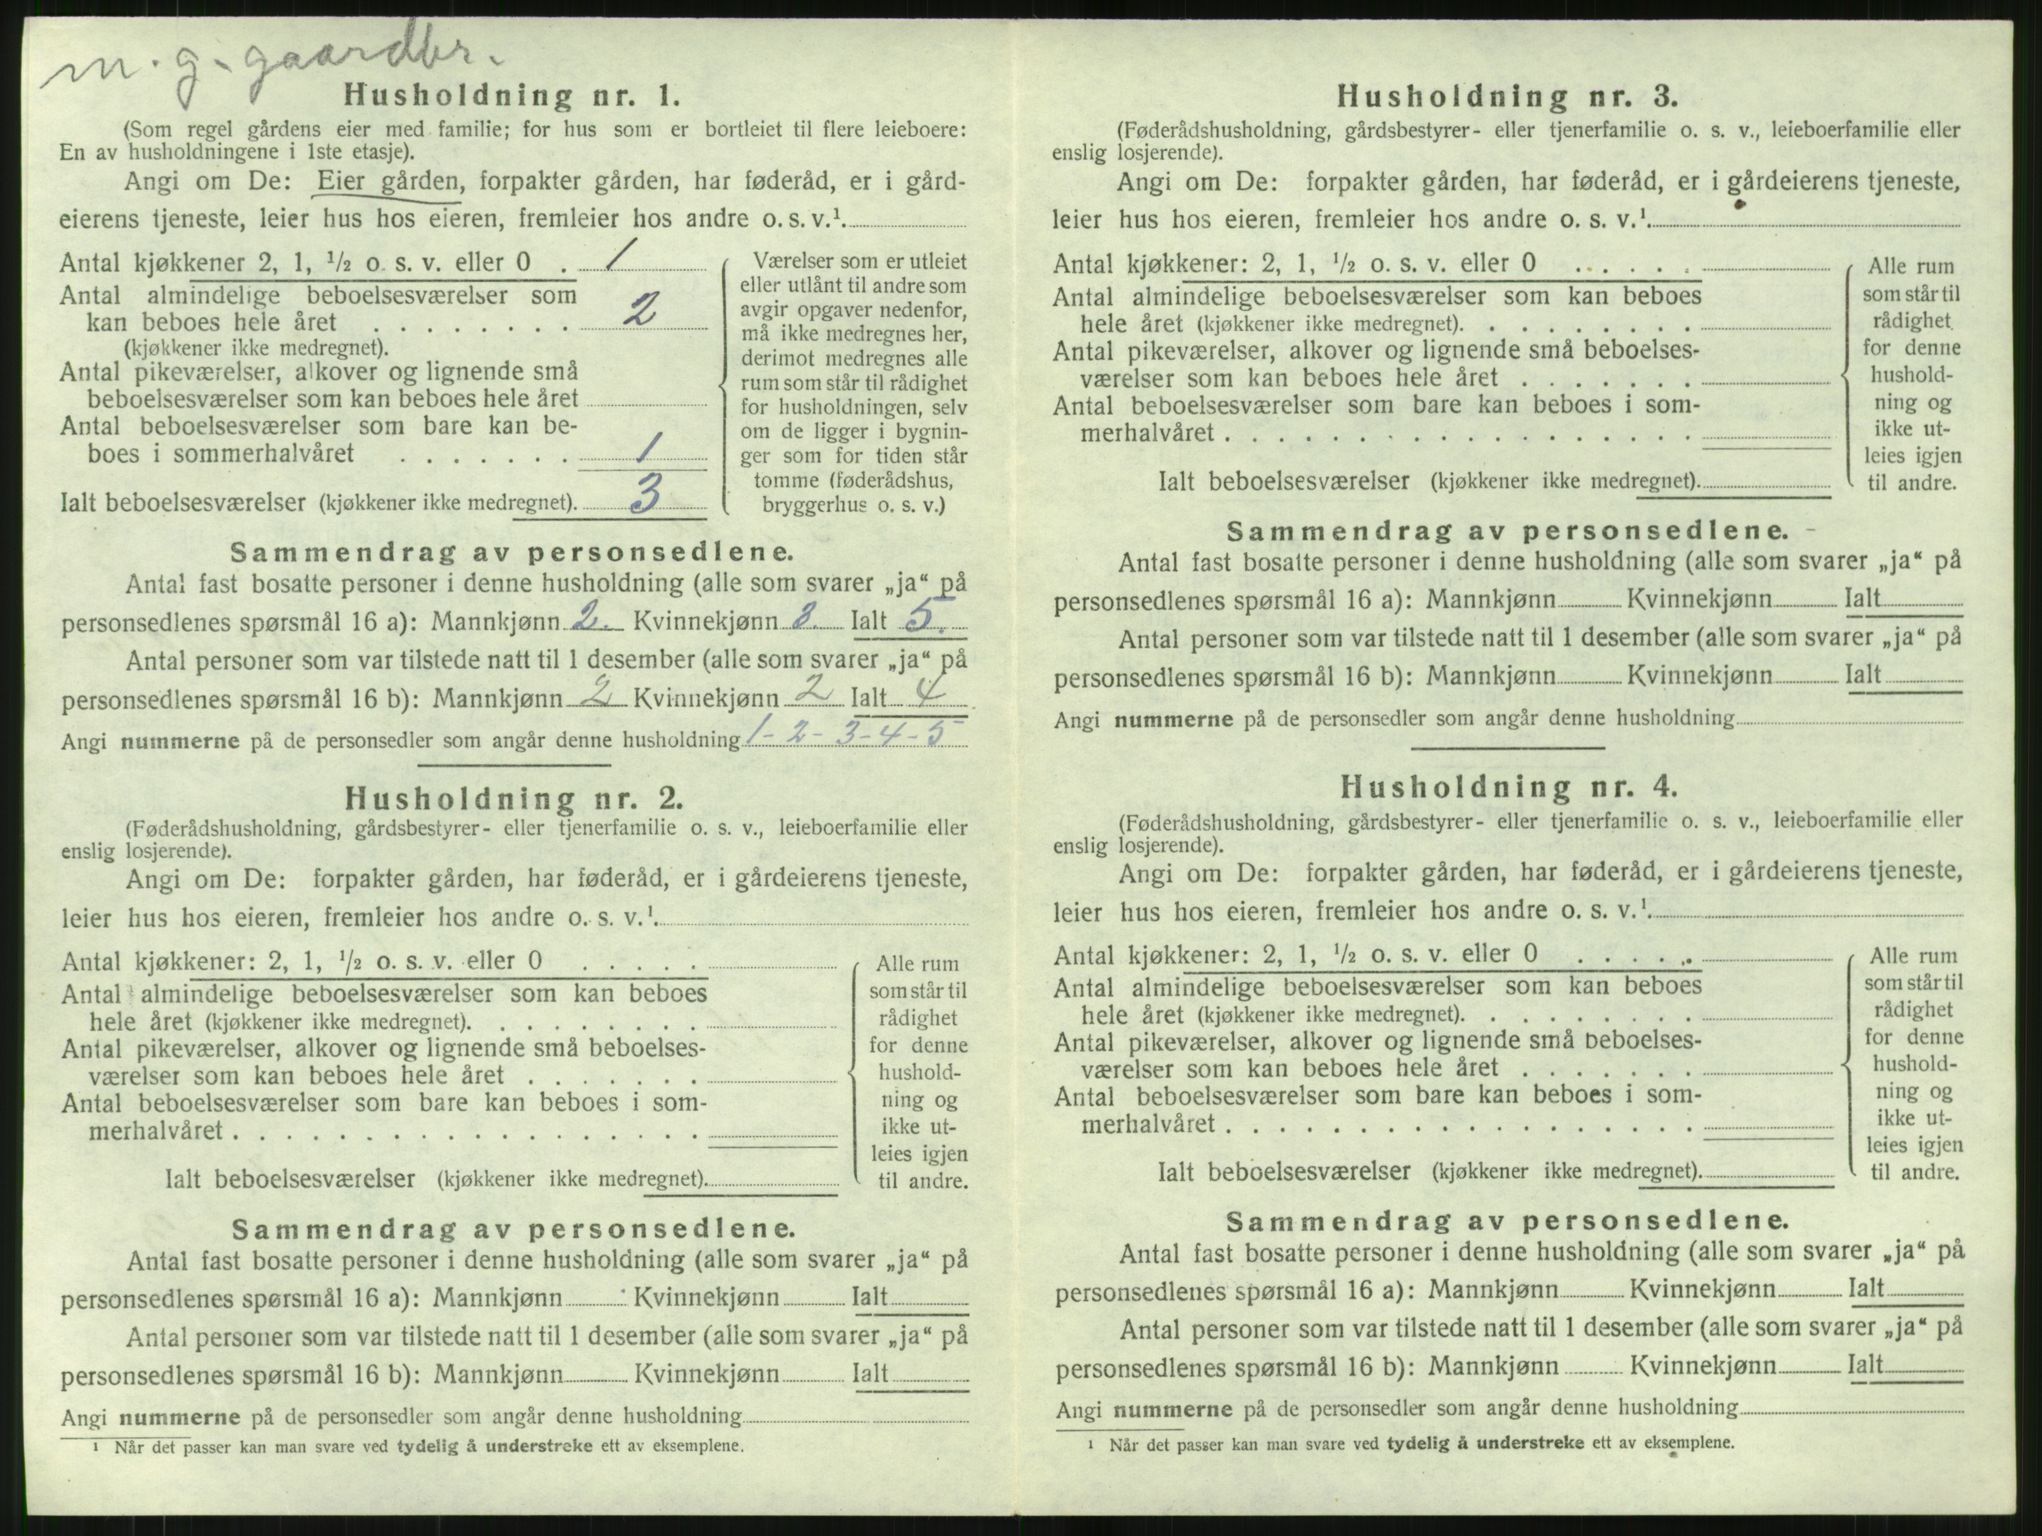 m. g. gaardbr.
Husholdning nr. 1.
(Som regel gårdens eier med familie; for hus som er bortleiet til flere leieboere:
En av husholdningene i 1ste etasje).
Angi om De: Eier gården, forpakter gården, har føderåd, er i gård-
eierens tjeneste, leier hus hos eieren, fremleier hos andre o. s. v.¹
Antal kjøkkener 2, 1, ½ o. s. v. eller 0 . 1
Antal almindelige beboelsesværelser som
kan beboes hele året . . . . . . . . 2
(kjøkkener ikke medregnet).
Antal pikeværelser, alkover og lignende små
beboelsesværelser som kan beboes hele året
Antal beboelsesværelser som bare kan be-
boes i sommerhalvåret . . . . . . . 1
Ialt beboelsesværelser (kjøkkener ikke medregnet). 3
Værelser som er utleiet
eller utlånt til andre som
avgir opgaver nedenfor,
må ikke medregnes her,
derimot medregnes alle
rum som står til rådighet
for husholdningen, selv
om de ligger i bygnin-
ger som for tiden står
tomme (føderådshus,
bryggerhus o. s. v.)
Sammendrag av personsedlene.
Antal fast bosatte personer i denne husholdning (alle som svarer „ja“ på
personsedlenes spørsmål 16 a): Mannkjønn 2. Kvinnekjønn 3. Ialt 5.
Antal personer som var tilstede natt til 1 desember (alle som svarer „ja“ på
personsedlenes spørsmål 16 b): Mannkjønn 2 Kvinnekjønn 2 Ialt 4
Angi nummerne på de personsedler som angår denne husholdning 1-2-3-4-5
Husholdning nr. 2.
(Føderådshusholdning, gårdsbestyrer- eller tjenerfamilie o. s. v., leieboerfamilie eller
enslig losjerende).
Angi om De: forpakter gården, har føderåd, er i gårdeierens tjeneste,
leier hus hos eieren, fremleier hos andre o. s. v.¹
Antal kjøkkener: 2, 1, ½ o. s. v. eller 0 . . . . .
Antal almindelige beboelsesværelser som kan beboes
hele året (kjøkkener ikke medregnet). . . . . . . . .
Antal pikeværelser, alkover og lignende små beboelses-
værelser som kan beboes hele året . . . . . . .
Antal beboelsesværelser som bare kan beboes i som-
merhalvåret . . . . . . . . . . . . . . . . . .
Ialt beboelsesværelser (kjøkkener ikke medregnet).
Alle rum
som står til
rådighet
for denne
hushold-
ning og
ikke ut-
leies igjen
til andre.
Sammendrag av personsedlene.
Antal fast bosatte personer i denne husholdning (alle som svarer „ja“ på
personsedlenes spørsmål 16 a): Mannkjønn Kvinnekjønn Ialt
Antal personer som var tilstede natt til 1 desember (alle som svarer „ja“ på
personsedlenes spørsmål 16 b): Mannkjønn Kvinnekjønn Ialt
Angi nummerne på de personsedler som angår denne husholdning
¹ Når det passer kan man svare ved tydelig å understreke ett av eksemplene.
Husholdning nr. 3.
(Føderådshusholdning, gårdsbestyrer- eller tjenerfamilie o. s. v., leieboerfamilie eller
enslig losjerende).
Angi om De: forpakter gården, har føderåd, er i gårdeierens tjeneste,
leier hus hos eieren, fremleier hos andre o. s. v.¹
Antal kjøkkener: 2, 1, ½ o. s. v. eller 0 . . . . .
Antal almindelige beboelsesværelser som kan beboes
hele året (kjøkkener ikke medregnet). . . . . . . . .
Antal pikeværelser, alkover og lignende små beboelses-
værelser som kan beboes hele året . . . . . . .
Antal beboelsesværelser som bare kan beboes i som-
merhalvåret . . . . . . . . . . . . . . . . . .
Ialt beboelsesværelser (kjøkkener ikke medregnet).
Alle rum
som står til
rådighet
for denne
hushold-
ning og
ikke ut-
leies igjen
til andre.
Sammendrag av personsedlene.
Antal fast bosatte personer i denne husholdning (alle som svarer „ja“ på
personsedlenes spørsmål 16 a): Mannkjønn Kvinnekjønn Ialt
Antal personer som var tilstede natt til 1 desember (alle som svarer „ja“ på
personsedlenes spørsmål 16 b): Mannkjønn Kvinnekjønn Ialt
Angi nummerne på de personsedler som angår denne husholdning
Husholdning nr. 4.
(Føderådshusholdning, gårdsbestyrer- eller tjenerfamilie o. s. v., leieboerfamilie eller
enslig losjerende).
Angi om De: forpakter gården, har føderåd, er i gårdeierens tjeneste,
leier hus hos eieren, fremleier hos andre o. s. v.¹
Antal kjøkkener: 2, 1, ½ o. s. v. eller 0 . . . . .
Antal almindelige beboelsesværelser som kan beboes
hele året (kjøkkener ikke medregnet). . . . . . . . .
Antal pikeværelser, alkover og lignende små beboelses-
værelser som kan beboes hele året . . . . . . .
Antal beboelsesværelser som bare kan beboes i som-
merhalvåret . . . . . . . . . . . . . . . . . .
Ialt beboelsesværelser (kjøkkener ikke medregnet).
Alle rum
som står til
rådighet
for denne
hushold-
ning og
ikke ut-
leies igjen
til andre.
Sammendrag av personsedlene.
Antal fast bosatte personer i denne husholdning (alle som svarer „ja“ på
personsedlenes spørsmål 16 a): Mannkjønn Kvinnekjønn Ialt
Antal personer som var tilstede natt til 1 desember (alle som svarer „ja“ på
personsedlenes spørsmål 16 b): Mannkjønn Kvinnekjønn Ialt
Angi nummerne på de personsedler som angår denne husholdning
¹ Når det passer kan man svare ved tydelig å understreke ett av eksemplene.